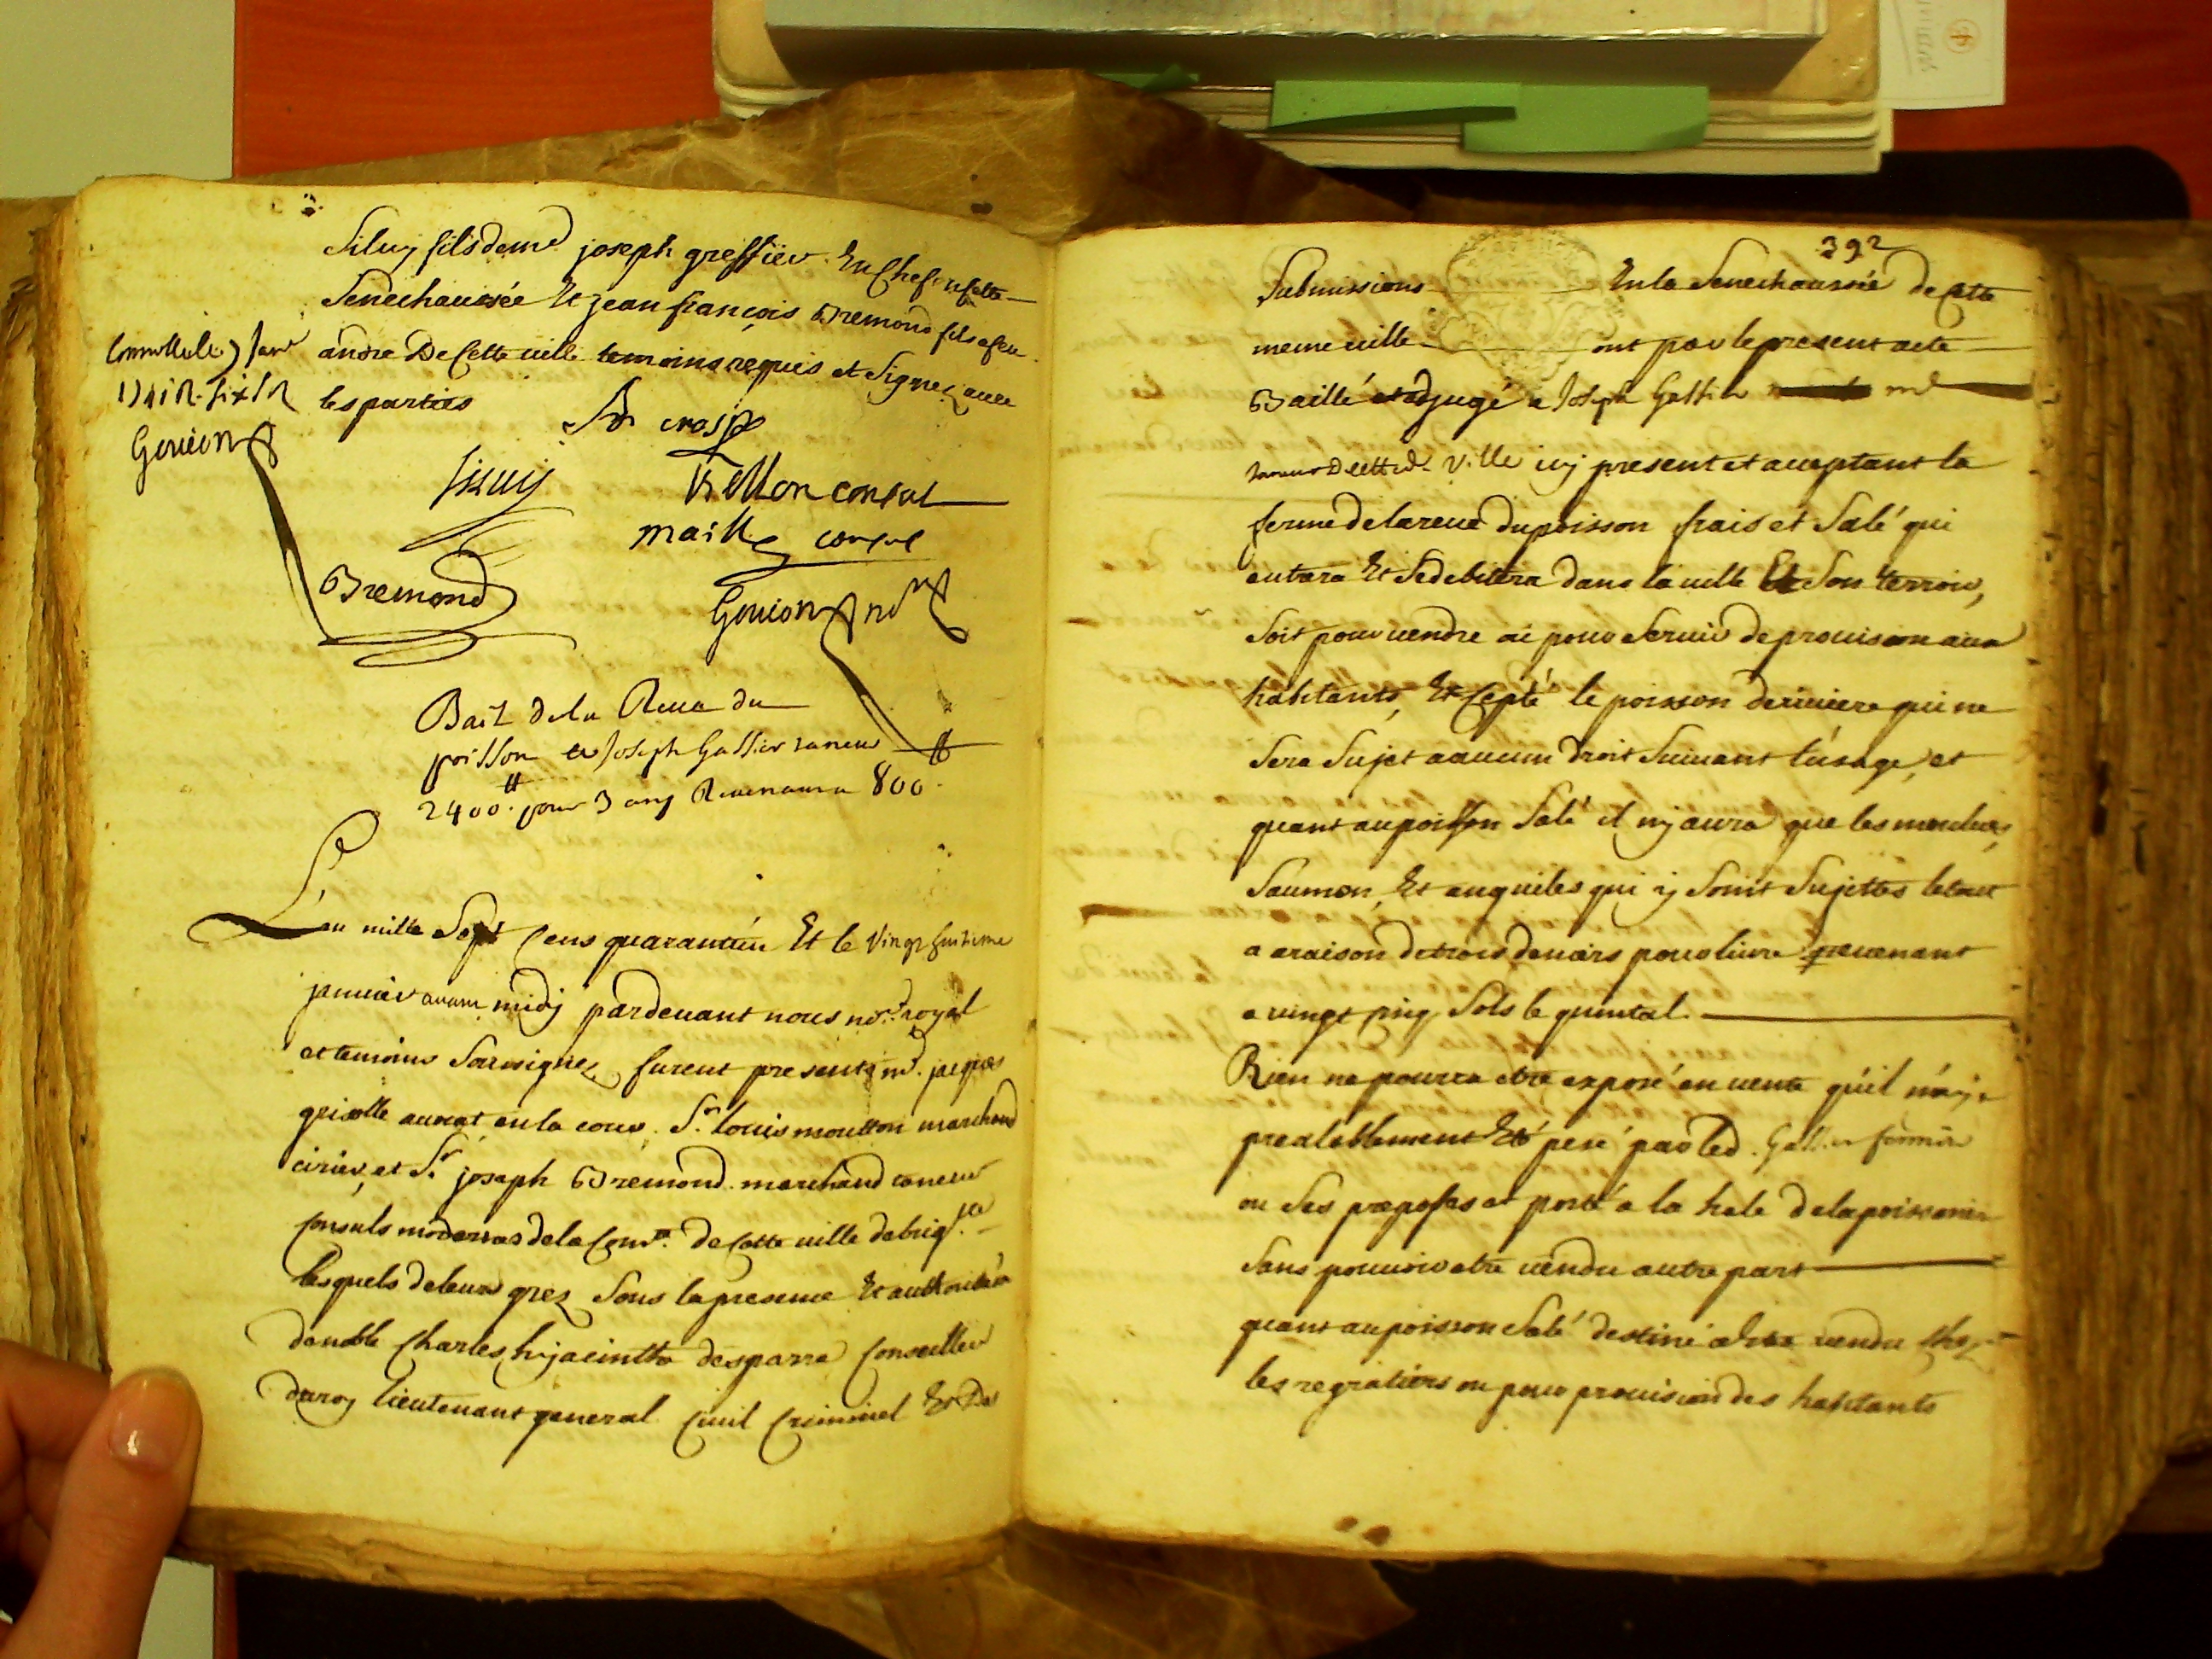 Siluy fils de me joseph greffier En Chef en cette
Senechaussée Et jean françois Bremond fils a feu
andre De Cette uille temoins requis et Signez auec
les parties
Controllé
Gouion
consul
maille consul
Bremond
Gouion nore
Bail dela Reua du
poisson a Joseph Gassier taneur
2400 pour 3 ans Reuenant a 800
L'an mille Sept Cens quarantun Et le Vingt huitieme
januier auant midy pardeuant nous nore royal
et temoins Soussignez furent presents me jacques
grisolle auocat en la cour Sr louis moutton marchand
cirier, et Sr joseph Bremond marchand taneur
Consuls modernes dela Comté De Cette uille de brig.lle
lesquels de leurs grez Sous la presence Et authorisation
de noble Charles hyjacintte desparra Conseiller
du roy lieutenant general Ciuil Criminel Et Des
392
Submissions En la Senechaussée de Cette
meme uille ont par le present acte
Baillé et adjugé a Joseph Gassier md
taneur De cette d. Ville icy present et acceptant la
ferme de la reue du poisson frais et Salé qui
entrera Et Se debitera dans la uille Et Son terroir,
Soit pour uendre ou pour Seruir de prouision aux
habitants, Excepté le poisson de riuiere qui ne
Sera Sujet a aucun Droit Suiuant l'usage, et
quant au poisson Salé il ny aura que les merlues,
Saumon, Et anguiles qui y Sont Sujettes le tout
a raison de trois deniers pour liure reuenant
a vingt cinq Sols le quintal.
Rien ne pourra etre exposé en uente qu'il n'aye
prealablement Eté pesé par led. Gassier fermier
ou Ses preposes et porté a la hale de la poissonerie
Sans pouuoir etre uendu autre part
quant au poisson Salé destiné a etre uendu Chez
les regratiers ou pour prouision des habitants